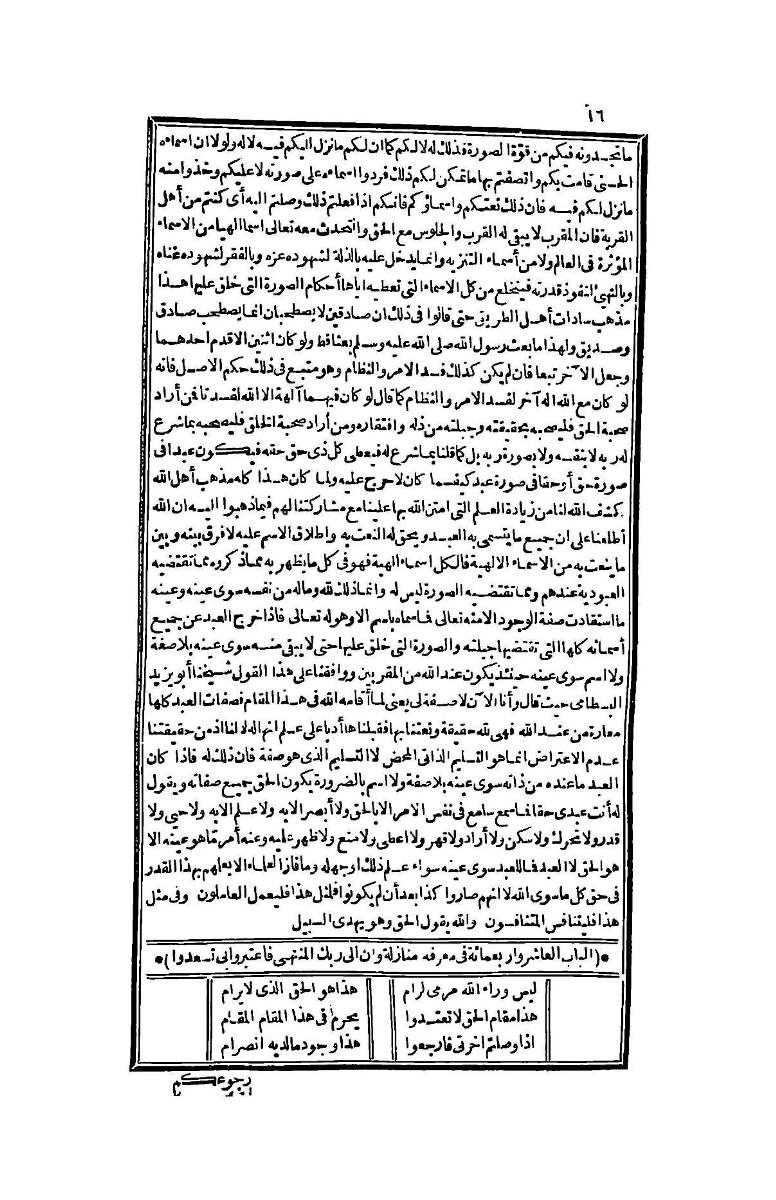 ١٦
ما تجدونه فيكم من قوة الصورة فذلك له لا لكم كما ان لكم ما نزل اليكم فيه لا له ولولا ان اسماءه
الحسنى قامت بكم واتصفتم بها ما تمكن لكم ذلك فردوا اسماءه على صورته لا عليكم وخذوا منه
ما نزل لكم فيه فان ذلك نعتكم واسماؤكم فانكم اذا فعلتم ذلك وصلتم اليه أى كنتم من أهل
القربة فان المقرب لا يبقى له القرب والجلوس مع الحق والتحدث معه تعالى اسما الهيا من الاسماء
المؤثرة فى العالم ولا من أسماء التنزيه وانما يدخل عليه بالذلة لشهود عزه وبالفقر لشهود غناه
وبالتهيئ لنفوذ قدرته فينخلع من كل الاسماء التى تعطيه اياها أحكام الصورة التى خلق عليها هذا
مذهب سادات أهل الطريق حتى قالوا فى ذلك ان صادقين لا يصطحبان انما يصطحب صادق
وصديق ولهذا ما بعث رسول الله صلى الله عليه وسلم بعثا قط ولو كان اثنين الا قدم احدهما
وجعل الآخر تبعا فان لم يكن كذلك فسد الامر والنظام وهو متبع فى ذلك حكم الاصل فانه
لو كان مع الله اله آخر لفسد الامر والنظام كما قال لو كان فيهما آلهة الا الله لفسدتا فمن أراد
صحبة الحق فليصحبه بحقيقته وجبلته من ذله وافتقاره ومن أراد صحبة الخلق فليصحبه بما شرع
له ربه لا بنفسه ولا بصورة ربه بل كما قلنا بما شرع له فيعطى كل ذى حق حقه فيكون عبدا فى
صورة حق أو حقا فى صورة عبد كيفما كان لا حرج عليه ولما كان هذا كله مذهب أهل الله
كشف الله لنا من زيادة العلم التى امتن الله بها علينا مع مشاركتنا لهم فيما ذهبوا اليه ان الله
أطلعنا على ان جميع ما يتسمى به العبد ويحق له النعت به واطلاق الاسم عليه لا فرق بينه وبين
ما ينعت به من الاسماء الالهية فالكل اسماء الهية فهو فى كل ما يظهر به مما ذكروه مما تقتضيه
العبودية عندهم ومما تقتضيه الصورة ليس له وانما ذلك لله وماله من نفسه سوى عينه وعينه
ما استفادت صفة الوجود الا منه تعالى فما سماه باسم الا وهو له تعالى فاذا خرج العبد عن جميع
أسمائه كلها التى تقتضيها جبلته والصورة التى خلق عليها حتى لا يبقى منه سوى عينه بلا صفة
ولا اسم سوى عينه حينئذ يكون عند الله من المقربين ووافقنا على هذا القول شيخنا أبو يزيد
البسطامى حيث قال وأنا الآن لا صفة لى يعنى لما أقامه الله فى هذا المقام فصفات العبد كلها
معارة من عند الله فهى لله حقيقة ونعتنا بها فقبلناها أدبا على علم انها له لا لنا اذ من حقيقتنا
عدم الاعتراض انما هو التسليم الذاتى المحض لا التسليم الذى هو صفة فان ذلك له فاذا كان
العبد ما عنده من ذاته سوى عينه بلا صفة ولا اسم بالضرورة يكون الحق جميع صفاته ويقول
له أنت عبدى حقا فما سمع سامع فى نفس الامر الا بالحق ولا أبصر الا به ولا علم الا به ولا حيى ولا
قدر ولا تحرك ولا سكن ولا أراد ولا قهر ولا اعطى ولا منع ولا ظهر عليه وعنه أمر ما هو عينه الا
هو الحق لا العبد فما للعبد سوى عينه سواء علم ذلك أو جهله وما فاز العلماء الا بعلمهم بهذا القدر
فى حق كل ما سوى الله لا انهم صاروا كذا بعد أن لم يكونوا فلمثل هذا فليعمل العاملون وفى مثل
هذا فليتنافس المتنافسون والله يقول الحق وهو يهدى السبيل
* (الباب العاشر واربعمائة فى معرفة منازلة وان الى ربك المنتهى فاعتبروا بى تسعدوا) *
ليس وراء الله مرمى لرام هذا هو الحق الذى لا يرام
هذا مقام الحق لا تعتدوا يحرم فى هذا المقام المقام
اذا وصلتم اخوتى فارجعوا هذا وجود ما لديه انصرام
رجوعكم